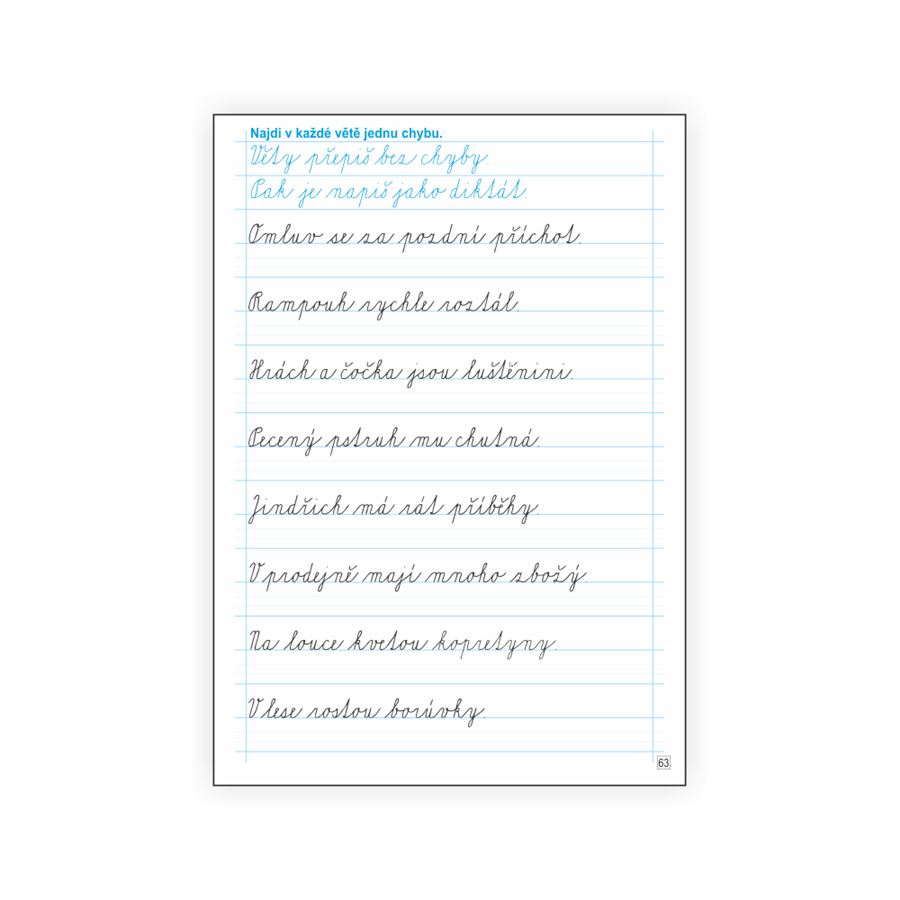 Najdi v každé větě jednu chybu.
Věty přepiš bez chyby.
Pak je napiš jako diktát.
Omluv se za pozdní příchot.
Rampouh rychle roztál.
Hrách a čočka jsou luštěnini.
Pecený pstruh mu chutná.
Jindřich má rát příběhy.
V prodejně mají mnoho zbožý.
Na louce kvetou kopretyny.
V lese rostou borúvky.
63